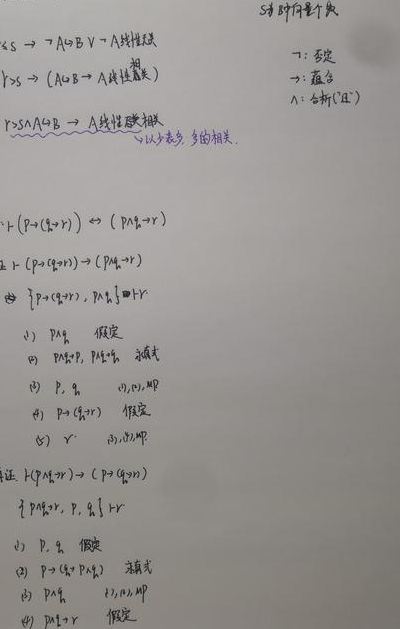 ≤s → ¬A↔B∨¬A线性
¬: 否定
r>s → (A↔B → A线性相关)
→: 蕴含
∧: 合析("且")
r>s∧A↔B → A线性相关
↳以少表多, 多的相关.
⊢(p→(q→r)) ↔ (p∧q→r)
⊢(p→(q→r))→(p∧q→r)
{p→(q→r), p∧q}⊢r
(1) p∧q 假定
(2) p∧q→p, p∧q→q 永真式
(3) p, q (1),(2),MP
(4) p→(q→r) 假定
(5) r (3),(4),MP.
证 ⊢(p∧q→r)→(p→(q→r))
{p∧q→r, p, q}⊢r
(1) p, q 假定
(2) p→(q→p∧q) 永真式
(3) p∧q (1),(2),MP
(4) p∧q→r 假定